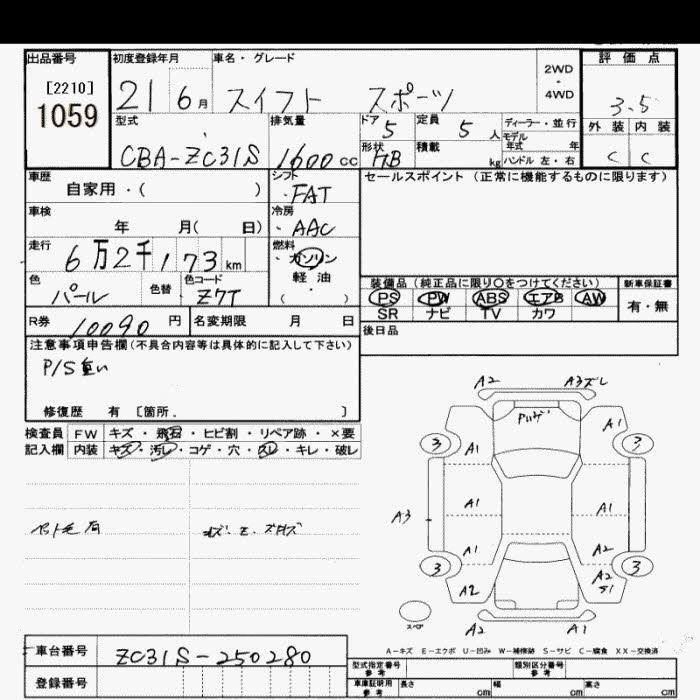 出品番号
[2210]
1059
初度登録年月
21 6月
車名・グレード
スイフト スポーツ
2WD
・
4WD
評価点
3.5
外装 内装
C C
型式
CBA-ZC31S
排気量
1600cc
ドア 5
定員 5人
ディーラー・並行
モデル
年式 年
形状 HB
積載 kg
ハンドル 左・右
車歴
自家用・( )
シフト
・FAT
セールスポイント (正常に機能するものに限ります)
車検
年 月( 日)
冷房
・AAC
走行
6万2千173km
燃料
・ガソリン
軽油
・
( )
色
パール
色替
色コード
Z7T
装備品 (純正品に限り○をつけてください)
新車保証書
PS PW ABS エアB AW
SR ナビ TV カワ
有・無
R券 10090円
名変期限 月 日
後日品
注意事項申告欄(不具合内容等は具体的に記入して下さい)
P/S重い
修復歴 有 [箇所. ]
検査員 FW キズ・飛石・ヒビ割・リペア跡・×要
記入欄 内装 キズ・汚レ・コゲ・穴・スレ・キレ・破レ
ペット毛有
A2 A3ズレ
A1
3 A1 3
A1 A1
A3
A1 A2
3 3
A2 A2
S1
スペア
A2 A1
A-キズ E-エクボ U-凹み W-補修跡 S-サビ C-腐食 XX-交換済
車台番号 ZC31S-250280
登録番号
型式指定番号
参考
類別区分番号
参考
車庫証明用
参考
長さ cm 幅 cm 高さ cm